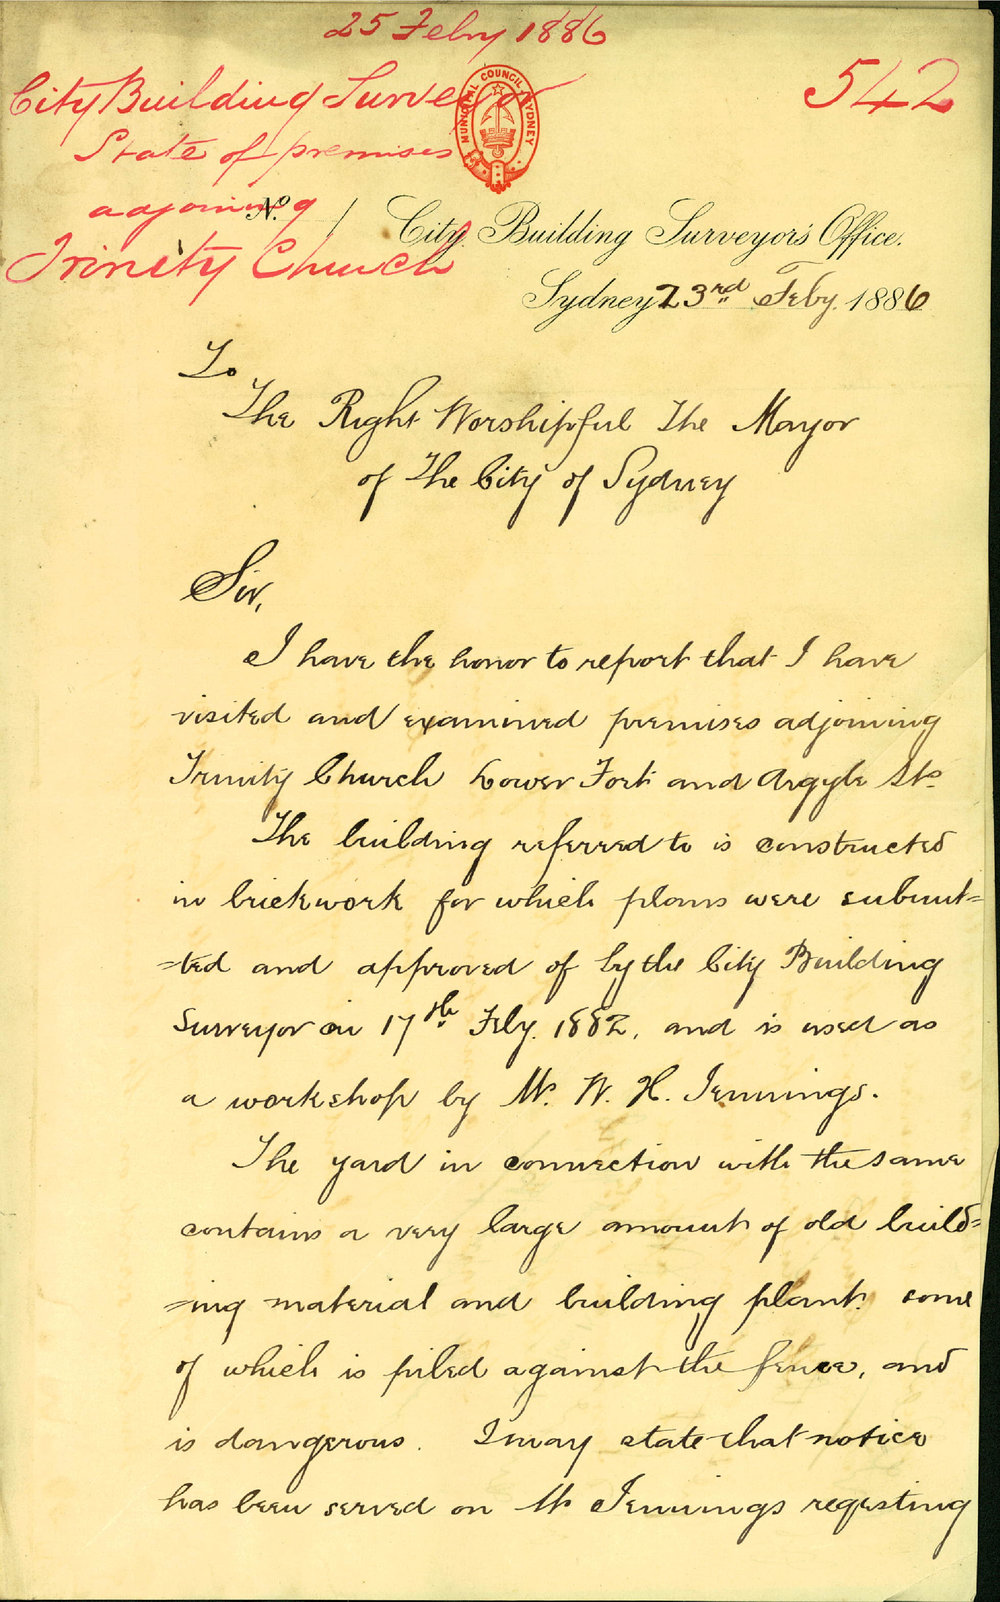 25 Feby 1886
542
City Building Surveyor
State of premises
adjoining
Trinity Church
MUNICIPAL COUNCIL SYDNEY
No. /
City Building Surveyor's Office.
Sydney 23rd Feby. 1886
To
The Right Worshipful The Mayor
of The City of Sydney
Sir,
I have the honor to report that I have
visited and examined premises adjoining
Trinity Church Lower Fort and Argyle Sts
The building referred to is constructed
in brickwork for which plans were submit=
=ted and approved of by the City Building
Surveyor on 17th Feby. 1882, and is used as
a workshop by Mr. W. H. Jennings.
The yard in connection with the same
contains a very large amount of old build=
=ing material and building plant. some
of which is piled against the fence, and
is dangerous. I may state that notice
has been served on Mr Jennings reqesting